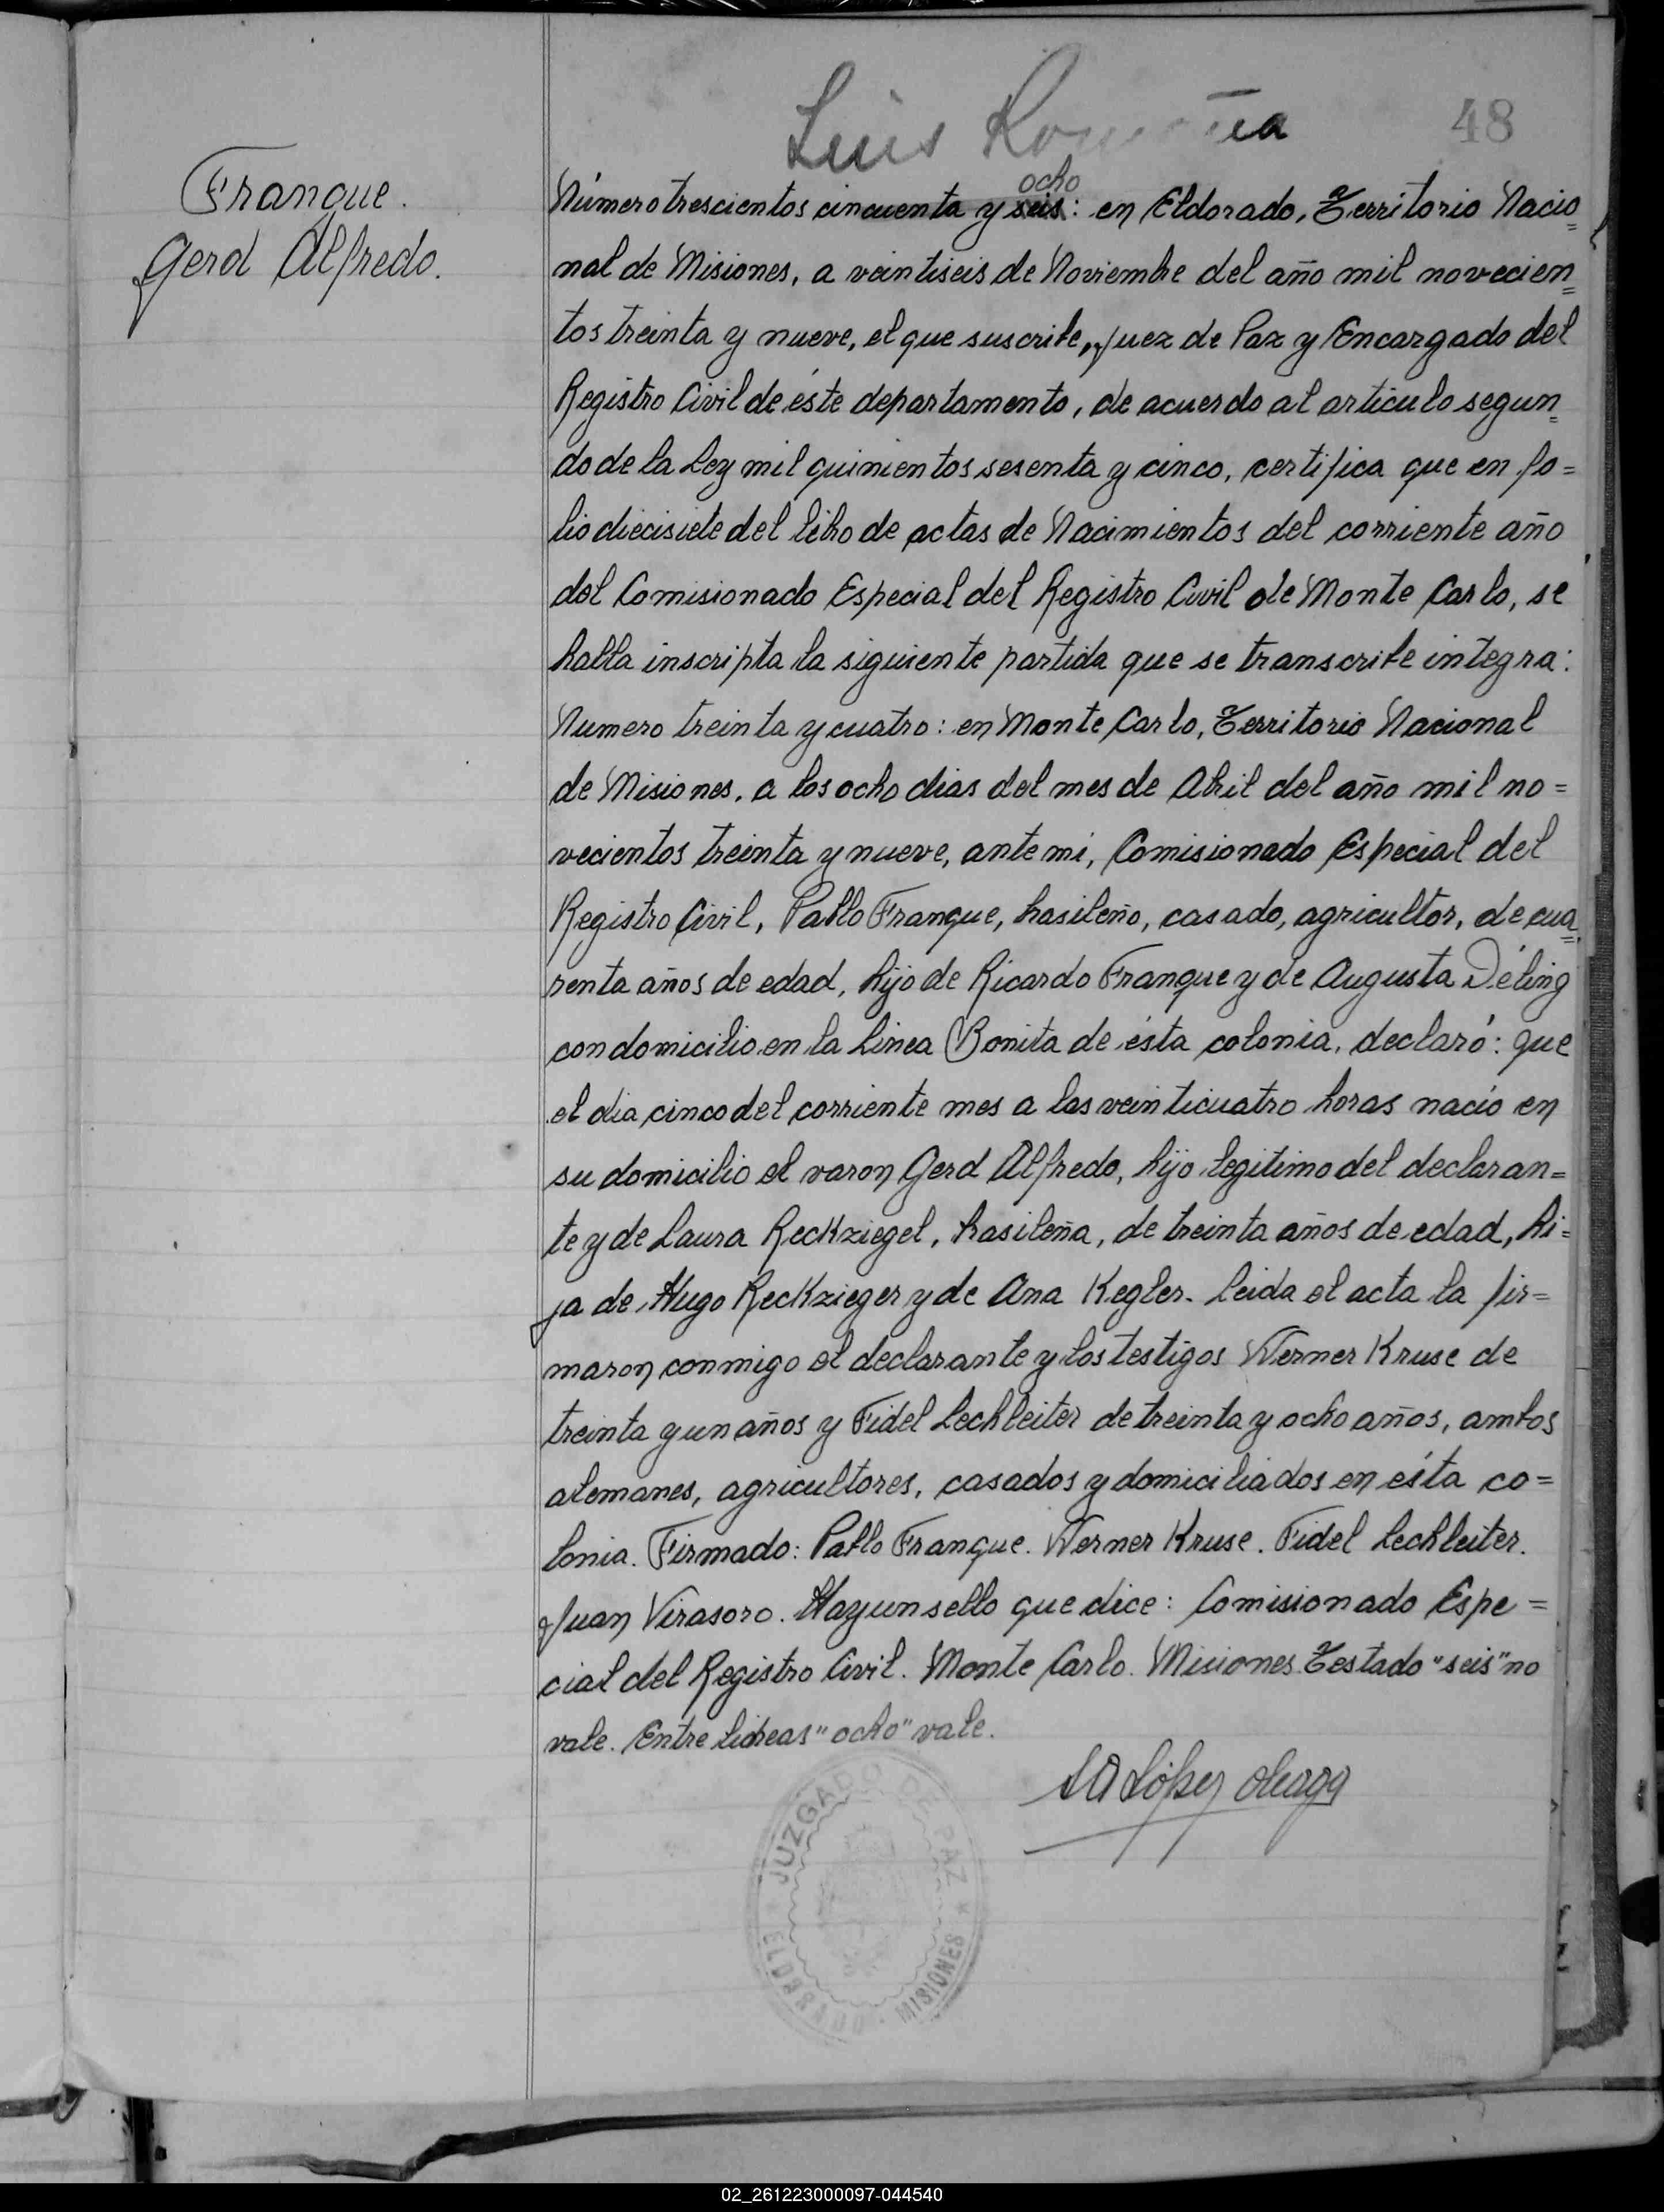 Luis
48
Franque.
Gerd Alfredo.
ocho
Número trescientos cincuenta y seis: en Eldorado, Territorio Nacio=
nal de Misiones, a veintiseis de Noviembre del año mil novecien=
tos treinta y nueve, el que suscribe, Juez de Paz y Encargado del
Registro Civil de éste departamento, de acuerdo al articulo segun=
do de la Ley mil quinientos sesenta y cinco, certifica que en fo=
lio diecisiete del libro de actas de Nacimientos del corriente año
del Comisionado Especial del Registro Civil de Monte Carlo, se
halla inscripta la siguiente partida que se transcribe integra:
Numero treinta y cuatro: en Monte Carlo, Territorio Nacional
de Misiones, a los ocho dias del mes de Abril del año mil no=
vecientos treinta y nueve, ante mi, Comisionado Especial del
Registro Civil, Pablo Franque, brasileño, casado, agricultor, de cua=
renta años de edad, hijo de Ricardo Franque y de Augusta Déling
con domicilio en la Linea Bonita de ésta colonia, declaró: que
el dia cinco del corriente mes a las veinticuatro horas nació en
su domicilio el varon Gerd Alfredo, hijo legitimo del declaran=
te y de Laura Reckziegel, brasileña, de treinta años de edad, hi=
ja de Hugo Reckzieger y de Ana Kegler. Leida el acta la fir=
maron conmigo el declarante y los testigos Werner Kruse de
treinta y un años y Fidel Lechleiter de treinta y ocho años, ambos
alemanes, agricultores, casados y domiciliados en ésta co=
lonia. Firmado: Pablo Franque. Werner Kruse. Fidel Lechleiter.
Juan Virasoro. Hay un sello que dice: Comisionado Espe=
cial del Registro Civil. Monte Carlo. Misiones. Testado "seis" no
vale. Entre lineas "ocho" vale.
López
JUZGADO DE PAZ
ELDORADO · MISIONES
02_261223000097-044540